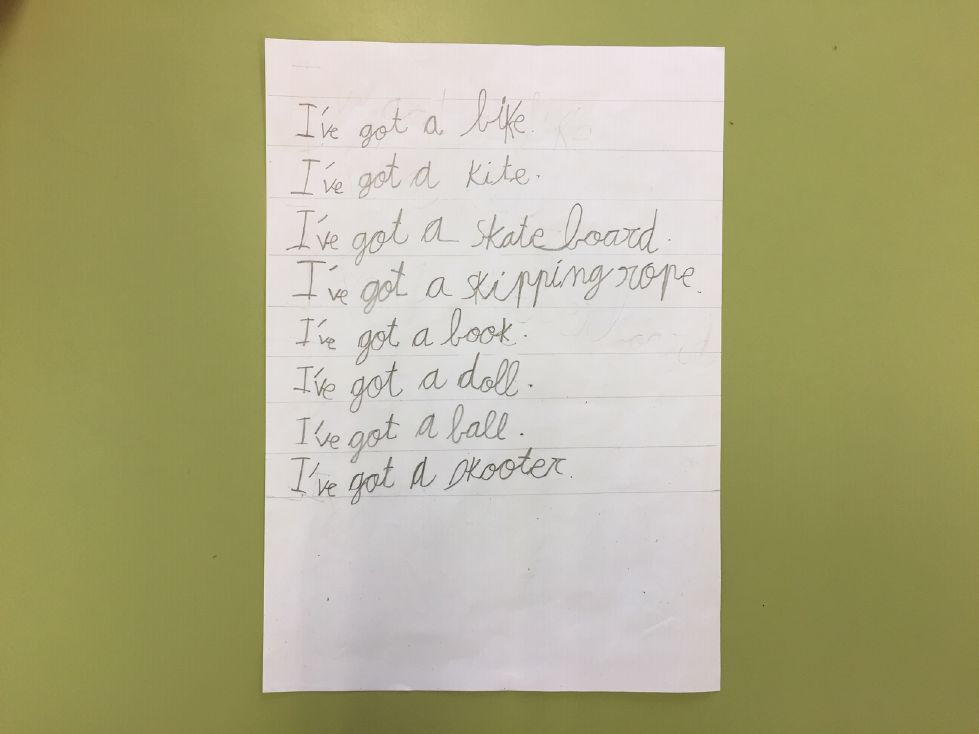 I've got a bike.
I've got a kite.
I've got a skate board.
I've got a skipping rope.
I've got a book.
I've got a doll.
I've got a ball.
I've got a skooter.